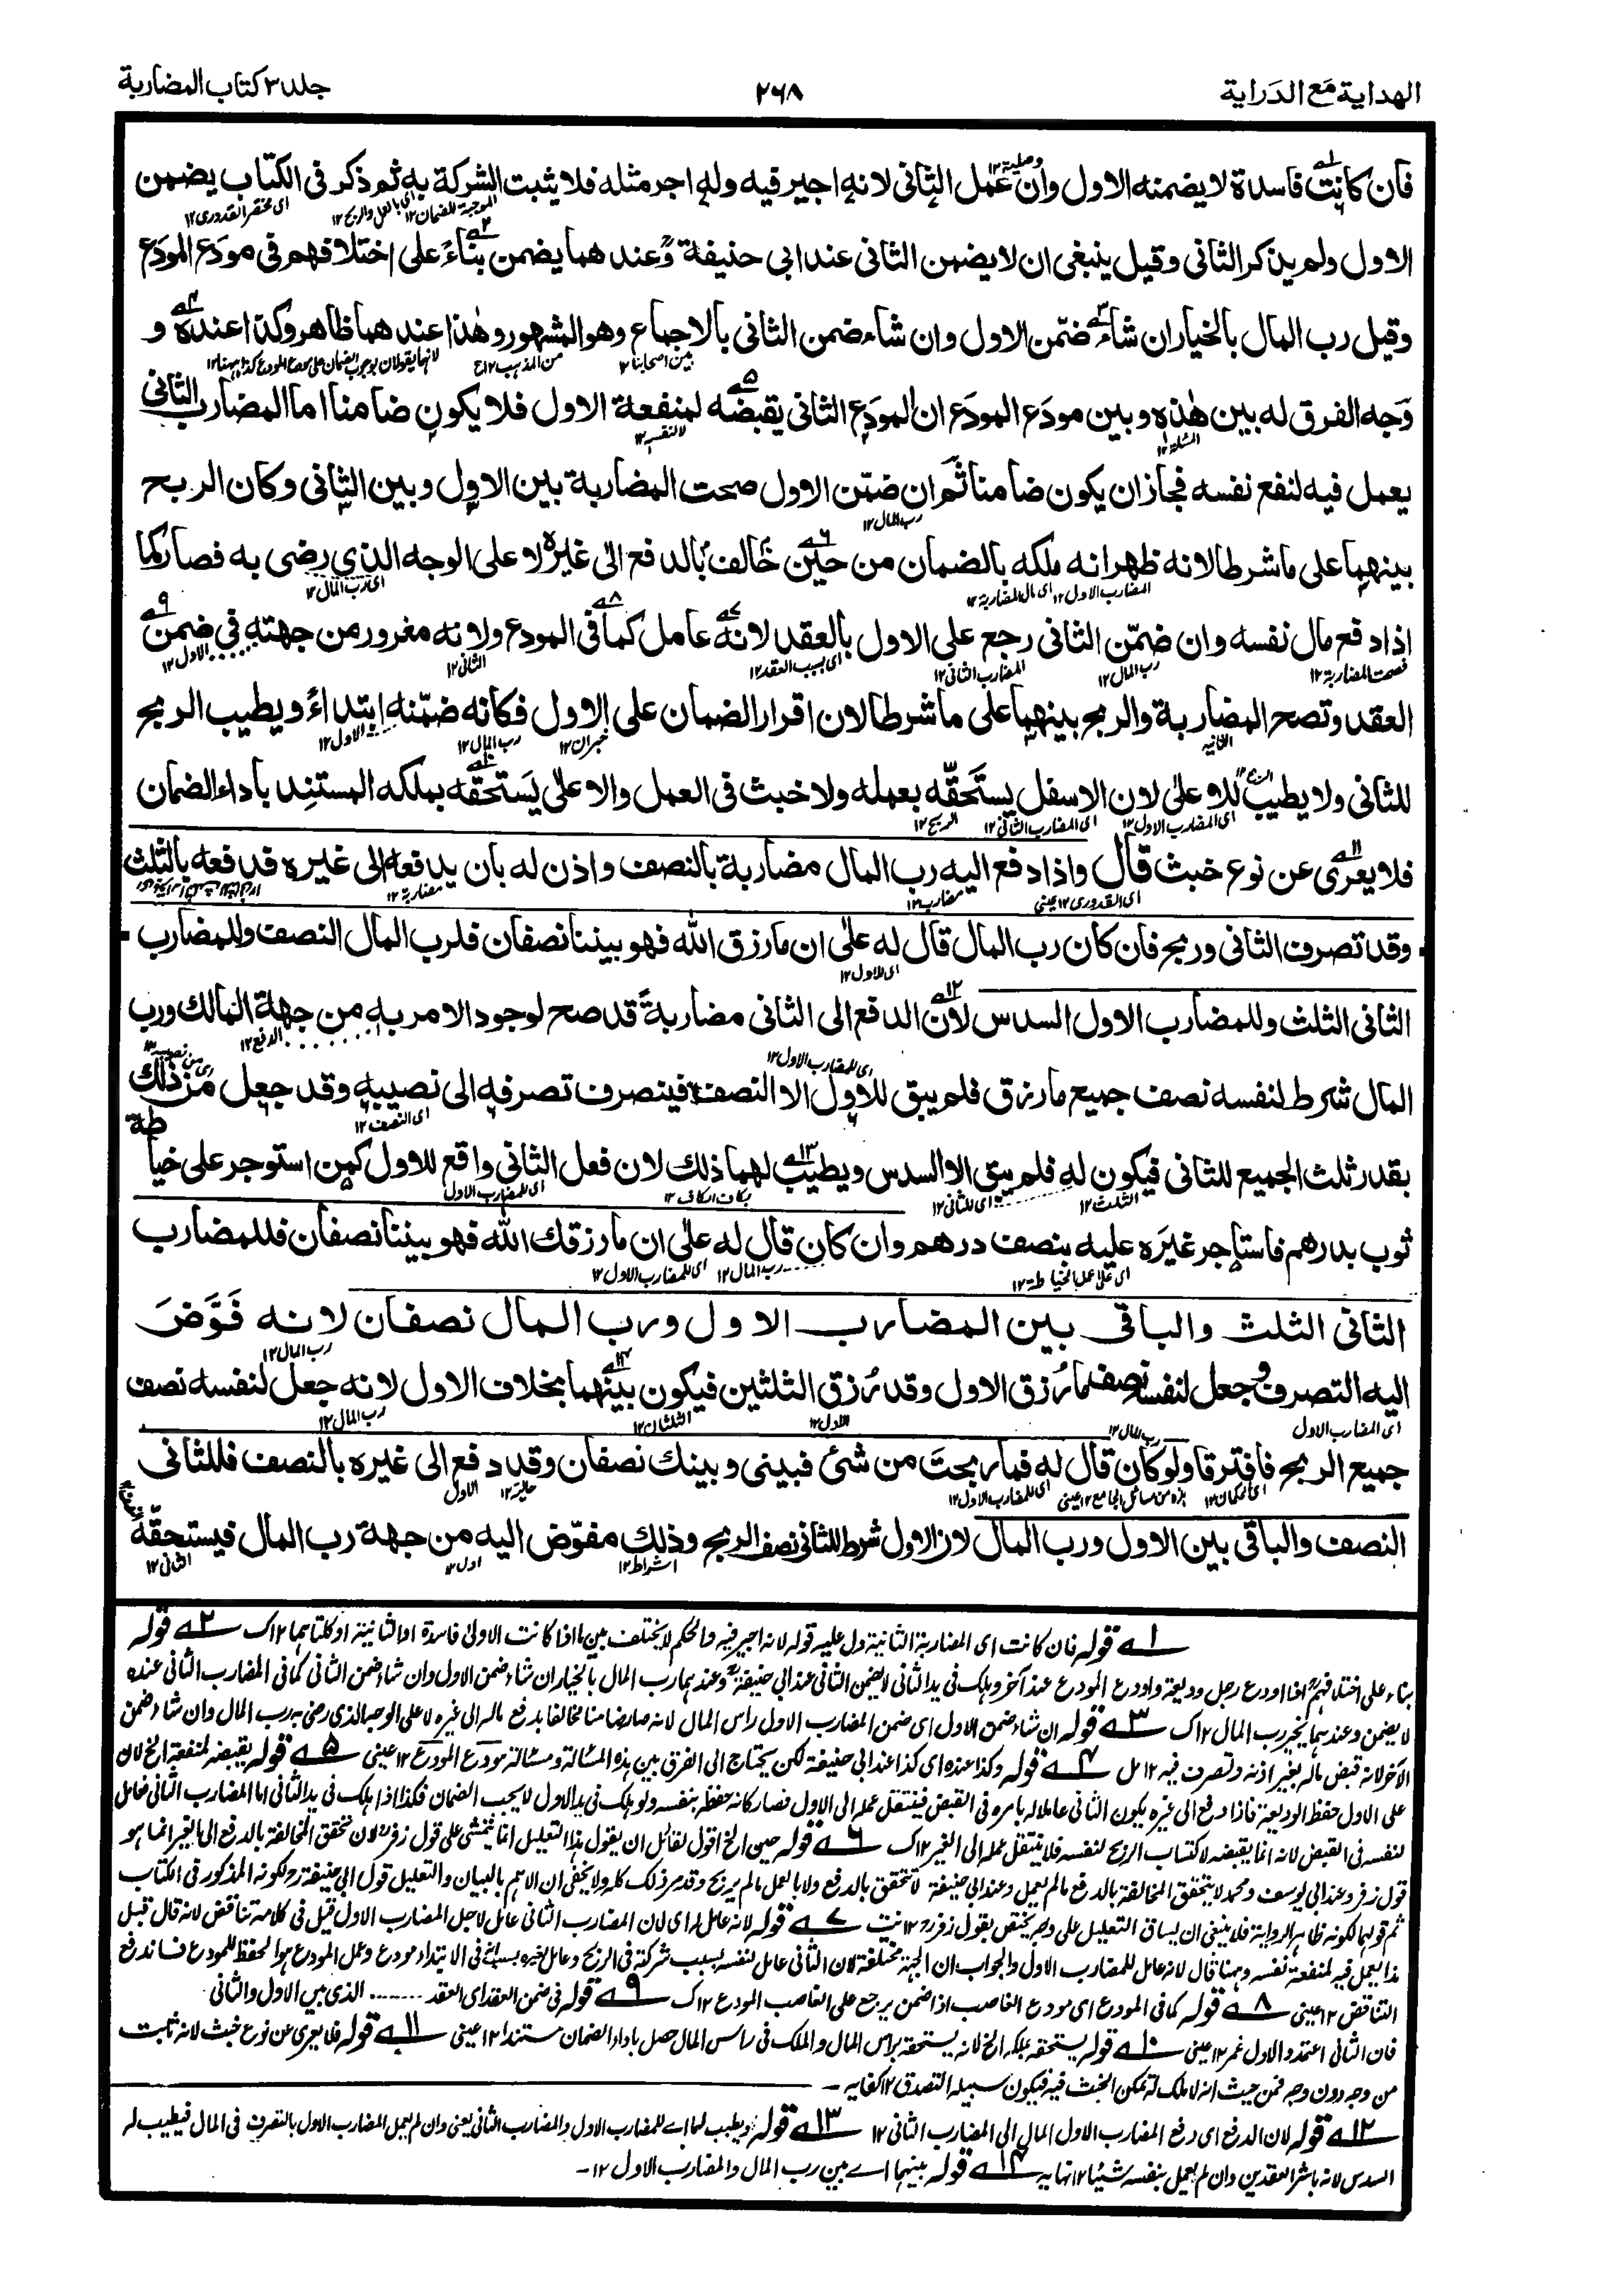 الهداية مع الدراية ۲۶۸ جلد ۳ كتاب المضاربة
فان كانت فاسدة لا يضمنه الاول وان عمل الثانى لانه اجير فيه وله اجر مثله فلا يثبت الشركة به ثم ذكر فى الكتاب يضمن
الاول ولم يذكر الثانى وقيل ينبغى ان لا يضمن الثانى عند ابى حنيفة وعندهما يضمن بناء على اختلافهم فى مودع المودع
وقيل رب المال بالخيار ان شاء ضمّن الاول وان شاء ضمن الثانى بالاجماع وهو المشهور وهذا عندهما ظاهر وكذا عنده و
وجه الفرق له بين هذه وبين مودع المودع ان المودع الثانى يقبضه لمنفعة الاول فلا يكون ضامنا اما المضارب الثانى
يعمل فيه لنفع نفسه فجاز ان يكون ضامنا ثم ان ضمّن الاول صحت المضاربة بين الاول وبين الثانى وكان الربح
بينهما على ما شرطا لانه ظهر انه ملكه بالضمان من حين خالف بالدفع الى غيره لا على الوجه الذى رضى به فصار كما
اذا دفع مال نفسه وان ضمّن الثانى رجع على الاول بالعقد لانه عامل كما فى المودع ولانه مغرور من جهته فى ضمن
العقد وتصح المضاربة والربح بينهما على ما شرطا لان اقرار الضمان على الاول فكانه ضمّنه ابتداءً ويطيب الربح
للثانى ولا يطيب للاعلى لان الاسفل يستحقّه بعمله ولا خبث فى العمل والاعلى يستحقه بملكه المستند باداء الضمان
فلا يعرى عن نوع خبث قال واذا دفع اليه رب المال مضاربة بالنصف واذن له بان يدفعه الى غيره فدفعه بالثلث
وقد تصرف الثانى وربح فان كان رب المال قال له على ان ما رزق الله فهو بيننا نصفان فلرب المال النصف وللمضارب
الثانى الثلث وللمضارب الاول السدس لان الدفع الى الثانى مضاربةً قد صح لوجود الامر به من جهة المالك ورب
المال شرط لنفسه نصف جميع ما رزق فلم يبق للاول الا النصف فينصرف تصرفه الى نصيبه وقد جعل من ذلك
بقدر ثلث الجميع للثانى فيكون له فلم يبق الا السدس ويطيب لهما ذلك لان فعل الثانى واقع للاول كمن استوجر على خياطة
ثوب بدرهم فاستاجر غيره عليه بنصف درهم وان كان قال له على ان ما رزقك الله فهو بيننا نصفان فللمضارب
الثانى الثلث والباقى بين المضارب الاول ورب المال نصفان لانه فَوَّضَ
اليه التصرف وجعل لنفسه نصف ما رُزق الاول وقد رُزق الثلثين فيكون بينهما بخلاف الاول لانه جعل لنفسه نصف
جميع الربح فافترقا ولو كان قال له فما ربحت من شئ فبينى وبينك نصفان وقد دفع الى غيره بالنصف فللثانى
النصف والباقى بين الاول ورب المال لان الاول شرط للثانى نصف الربح وذلك مفوّض اليه من جهة رب المال فيستحقّه
۱ قوله فان كانت اى المضاربة الثانية دل عليه قوله لانه اجير فيه والحكم لا يختلف بين ما اذا كانت الاولى فاسدة او الثانية او كلتاهما ۱۲ک ۲ قوله
بناء على اختلافهم اذا اودع رجل وديعة واودع المودع عند آخر وهلك فى يد الثانى لا يضمن الثانى عند ابى حنيفة وعندهما رب المال بالخيار ان شاء ضمن الاول وان شاء ضمن الثانى كما فى المضارب الثانى عنده
لا يضمن وعندهما يخير رب المال ۱۲ک ۳ قوله ان شاء ضمن الاول اى ضمن المضارب الاول راس المال لانه صار ضامنا مخالفا بدفع ماله الى غيره لا على الوجه الذى رضى به رب المال وان شاء ضمن
الآخر لانه قبض ماله بغير اذنه وتصرف فيه ۱۲ مل ۴ قوله وكذا عنده اى كذا عند ابى حنيفة لكن يحتاج الى الفرق بين هذه المسئالة ومسئالة مودع المودع ۱۲ عينى ۵ قوله يقبضه لمنفعة الخ لان
على الاول حفظ الوديعة فاذا دفع الى غيره يكون الثانى عاملا له بامره فى القبض فينتقل عمله الى الاول فصار كانه حفظ بنفسه ولو هلك فى يد الاول لا يجب الضمان فكذا اذا هلك فى يد الثانى اما المضارب الثانى عامل
لنفسه فى القبض لانه انما يقبضه لاكتساب الربح لنفسه فلا ينتقل عمله الى الغير ۱۲ک ۶ قوله حين الخ اقول لقائل ان يقول هذا التعليل انما يتمشى على قول زفر لان تحقق المخالفة بالدفع الى الغير انما هو
قول زفر وعند ابى يوسف ومحمد لا يتحقق المخالفة بالدفع مالم يعمل وعند ابى حنيفة لا تتحقق بالدفع ولا بالعمل مالم يربح وقد مر ذلك كله ولا يخفى ان الاهم بالبيان والتعليل قول ابى حنيفة لكونه المذكور فى الكتاب
ثم قولهما لكونه ظاهر الرواية فلا ينبغى ان يساق التعليل على وجه يختص بقول زفر ۱۲ نت ۷ قوله لانه عامل له اى لان المضارب الثانى عامل لاجل المضارب الاول قيل فى كلامه تناقض لانه قال قبل
هذا يعمل فيه لمنفعة نفسه وههنا قال لانه عامل للمضارب الاول والجواب ان الجهة مختلفة لان الثانى عامل لنفسه بسبب شركته فى الربح وعامل لغيره بسبب انه فى الابتداء مودع وعمل المودع هو الحفظ للمودع فاندفع
التناقض ۱۲ عينى ۸ قوله كما فى المودع اى مودع الغاصب اذا ضمن يرجع على الغاصب المودع ۱۲ک ۹ قوله فى ضمن العقد اى العقد ........ الذى بين الاول والثانى
فان الثانى اعتمد والاول غر ۱۲ عينى ۱۰ قوله يستحقه بملكه الخ لانه يستحقه براس المال والملك فى راس المال حصل باداء الضمان مستندا ۱۲ عينى ۱۱ قوله فلا يعرى عن نوع خبث لانه ثابت
من وجه دون وجه فمن حيث انه لا ملك له تمكن الخبث فيه فيكون سبيله التصدق ۱۲ كفايه
۱۲ قوله لان الدفع اى دفع المضارب الاول المال الى المضارب الثانى ۱۲ ۱۳ قوله ويطيب لهما اے للمضارب الاول والمضارب الثانى يعنى وان لم يعمل المضارب الاول بالتصرف فى المال فيطيب له
السدس لانه باشر العقدين وان لم يعمل بنفسه شيئا ۱۲ نهايه ۱۴ قوله بينهما اے بين رب المال والمضارب الاول ۱۲